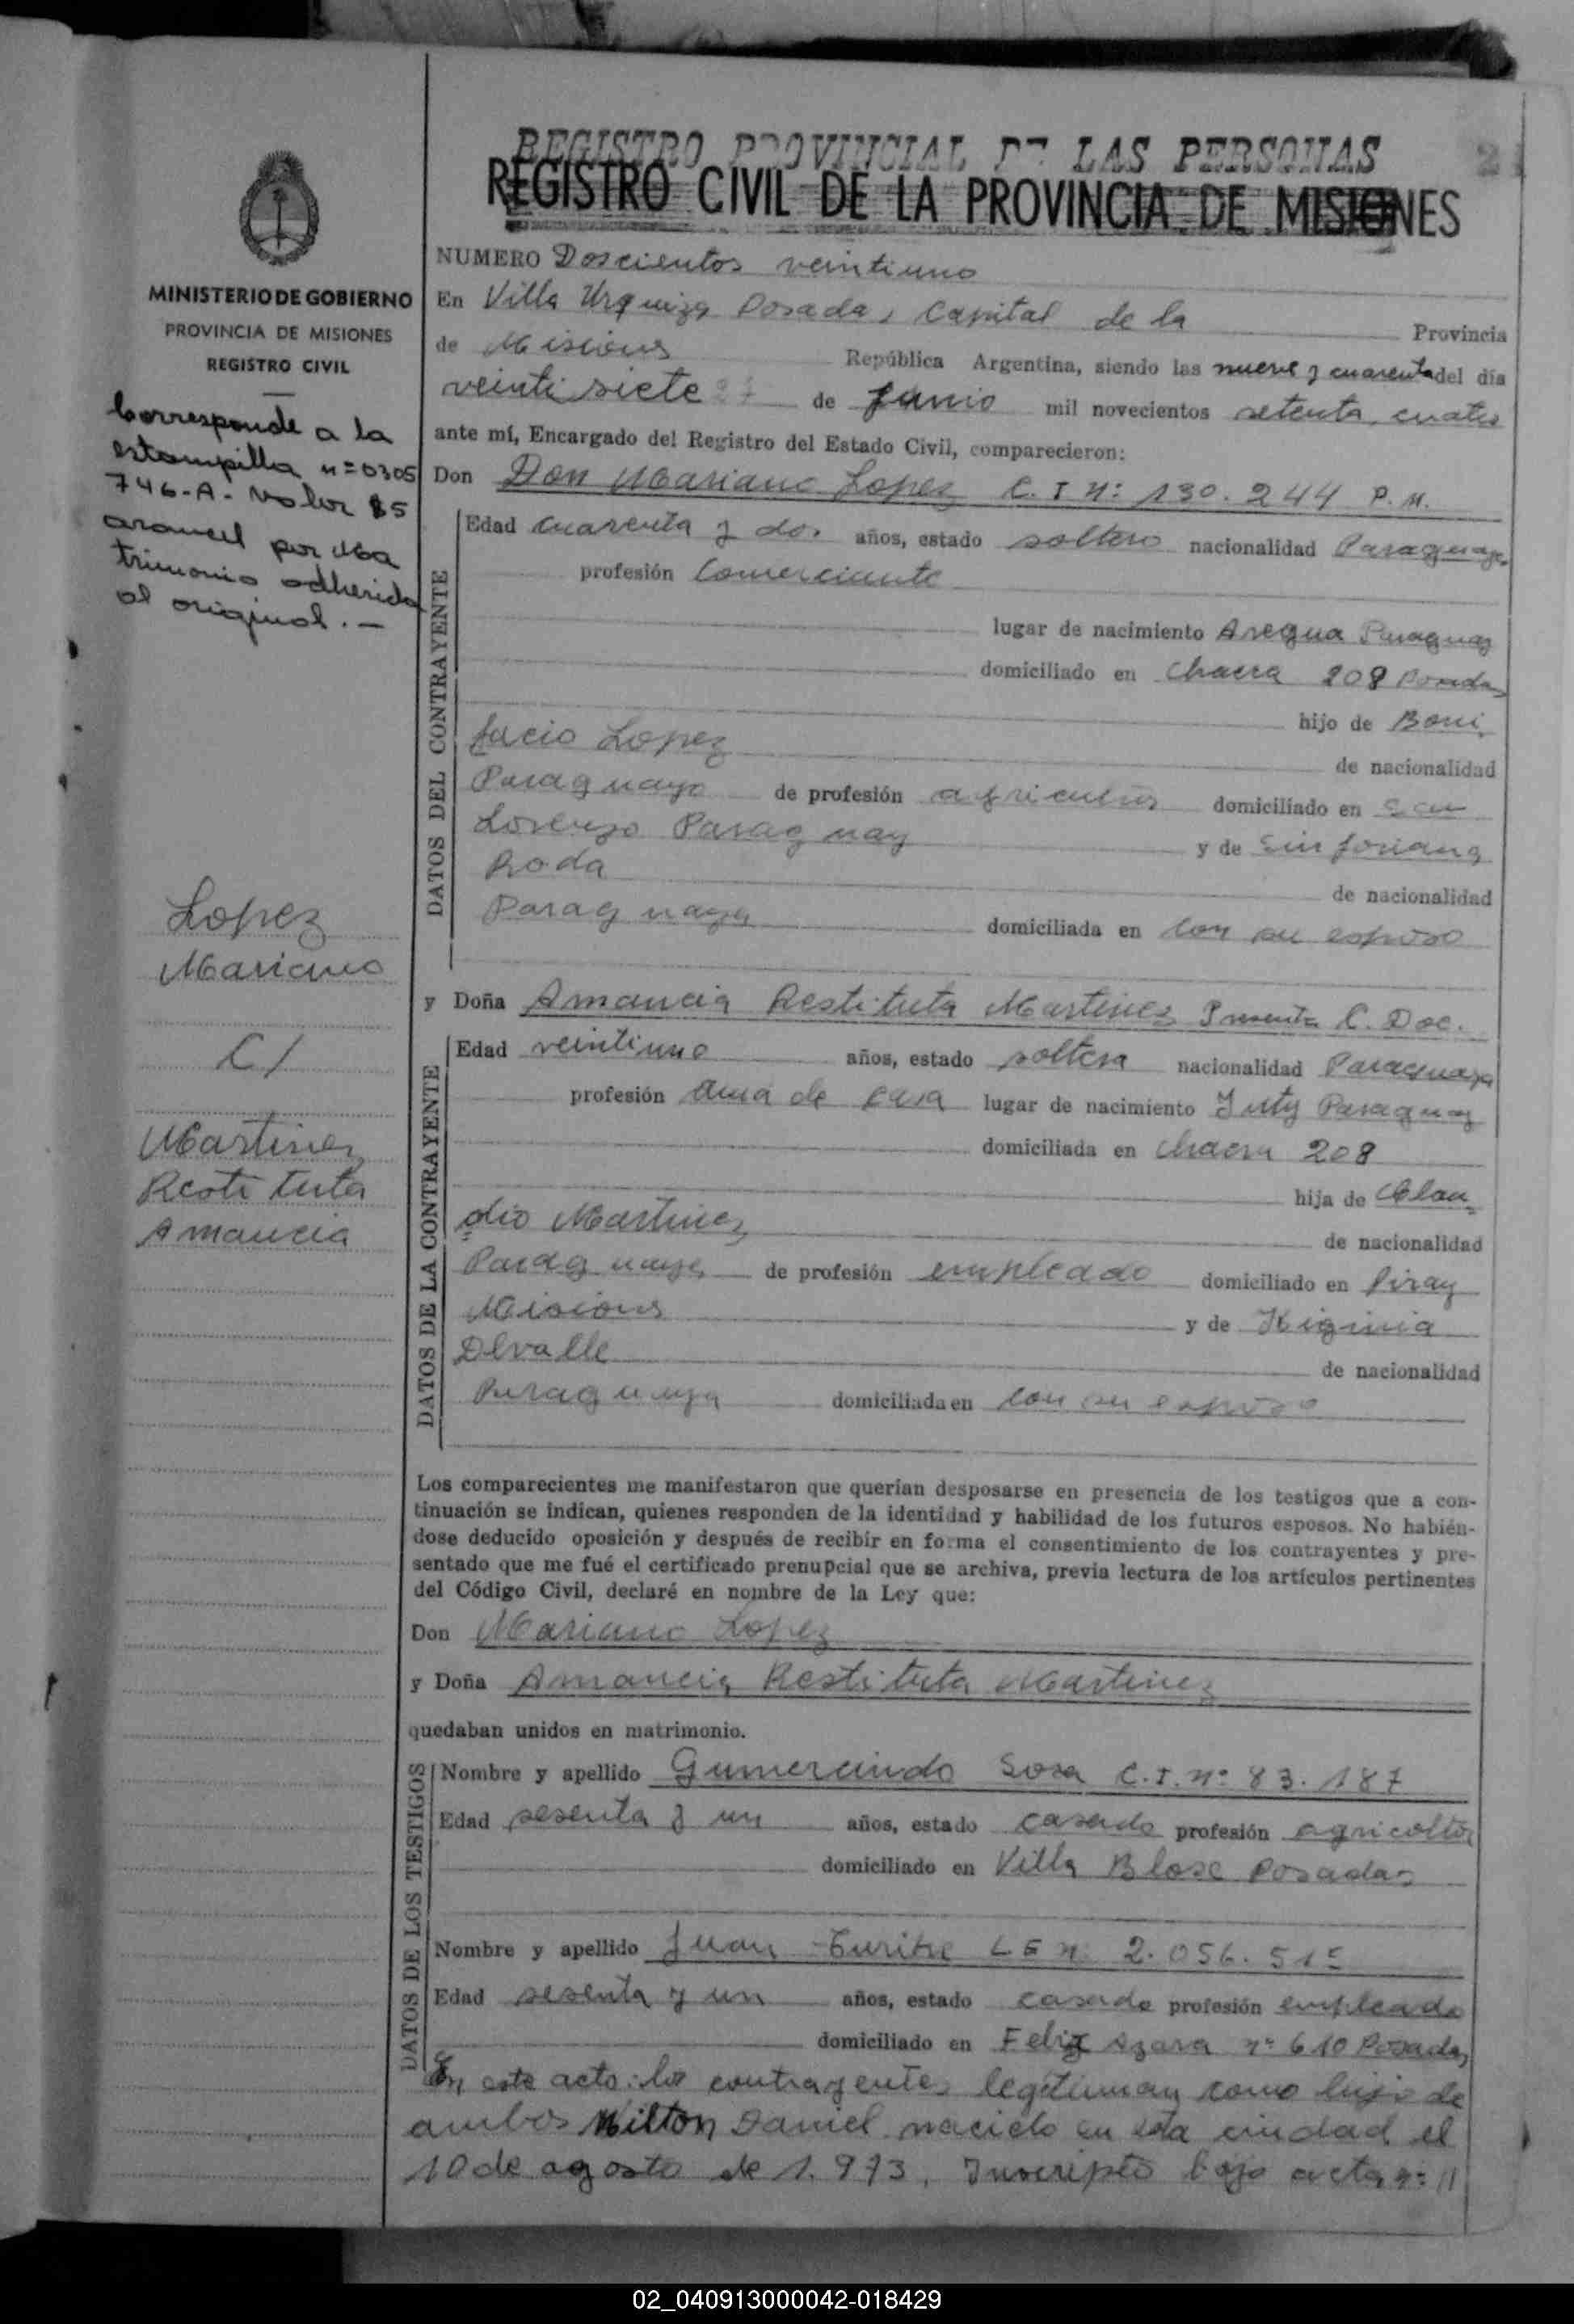 REGISTRO PROVINCIAL DE LAS PERSONAS
REGISTRO CIVIL DE LA PROVINCIA DE MISIONES
MINISTERIO DE GOBIERNO
PROVINCIA DE MISIONES
REGISTRO CIVIL
Corresponde a la
estampilla n=0305
746-A- Valor $5
arancel por Ma
trimonio adherida
al original. -
Lopez
Mariano
C/
Martinez
Restituta
Amancia
NUMERO Doscientos veintiuno
En Villa Urquiza Posadas, Capital de la Provincia
de Misiones República Argentina, siendo las nueve y cuarenta del día
veintisiete 27 de Junio mil novecientos setenta cuatro
ante mí, Encargado del Registro del Estado Civil, comparecieron:
Don Don Mariano Lopez C. I Nº 130.244 P. M.
DATOS DEL CONTRAYENTE
Edad cuarenta y dos años, estado soltero nacionalidad Paraguaya
profesión Comerciante
lugar de nacimiento Aregua Paraguay
domiciliado en Chacra 208 Posadas
hijo de Boni
facio Lopez de nacionalidad
Paraguaya de profesión agricultor domiciliado en San
Lorenzo Paraguay y de Sinforiana
Roda de nacionalidad
Paraguaya domiciliada en con su esposo
y Doña Amancia Restituta Martinez Presenta C. Doc.
DATOS DE LA CONTRAYENTE
Edad veintiuno años, estado soltera nacionalidad Paraguaya
profesión ama de casa lugar de nacimiento Yuty Paraguay
domiciliada en chacra 208
hija de Clau
dio Martinez de nacionalidad
Paraguaya de profesión empleado domiciliado en Piray
Misiones y de Higinia
Delvalle de nacionalidad
Paraguaya domiciliada en con su esposo
Los comparecientes me manifestaron que querían desposarse en presencia de los testigos que a con-
tinuación se indican, quienes responden de la identidad y habilidad de los futuros esposos. No habién-
dose deducido oposición y después de recibir en forma el consentimiento de los contrayentes y pre-
sentado que me fué el certificado prenupcial que se archiva, previa lectura de los artículos pertinentes
del Código Civil, declaré en nombre de la Ley que:
Don Mariano Lopez
y Doña Amancia Restituta Martinez
quedaban unidos en matrimonio.
DATOS DE LOS TESTIGOS
Nombre y apellido Gumercindo Sosa C.I. nº 83.187
Edad sesenta y un años, estado casado profesión agricoltor
domiciliado en Villa Blose Posadas
Nombre y apellido Juan L E n 2.056.515
Edad sesenta y un años, estado casado profesión empleado
domiciliado en Felix Azara nº 610 Posadas
En este acto los contrayentes legitiman como hijo de
ambos Milton Daniel nacido en esta ciudad el
10 de agosto de 1.973, Inscripto bajo acta nº 11
02_040913000042-018429